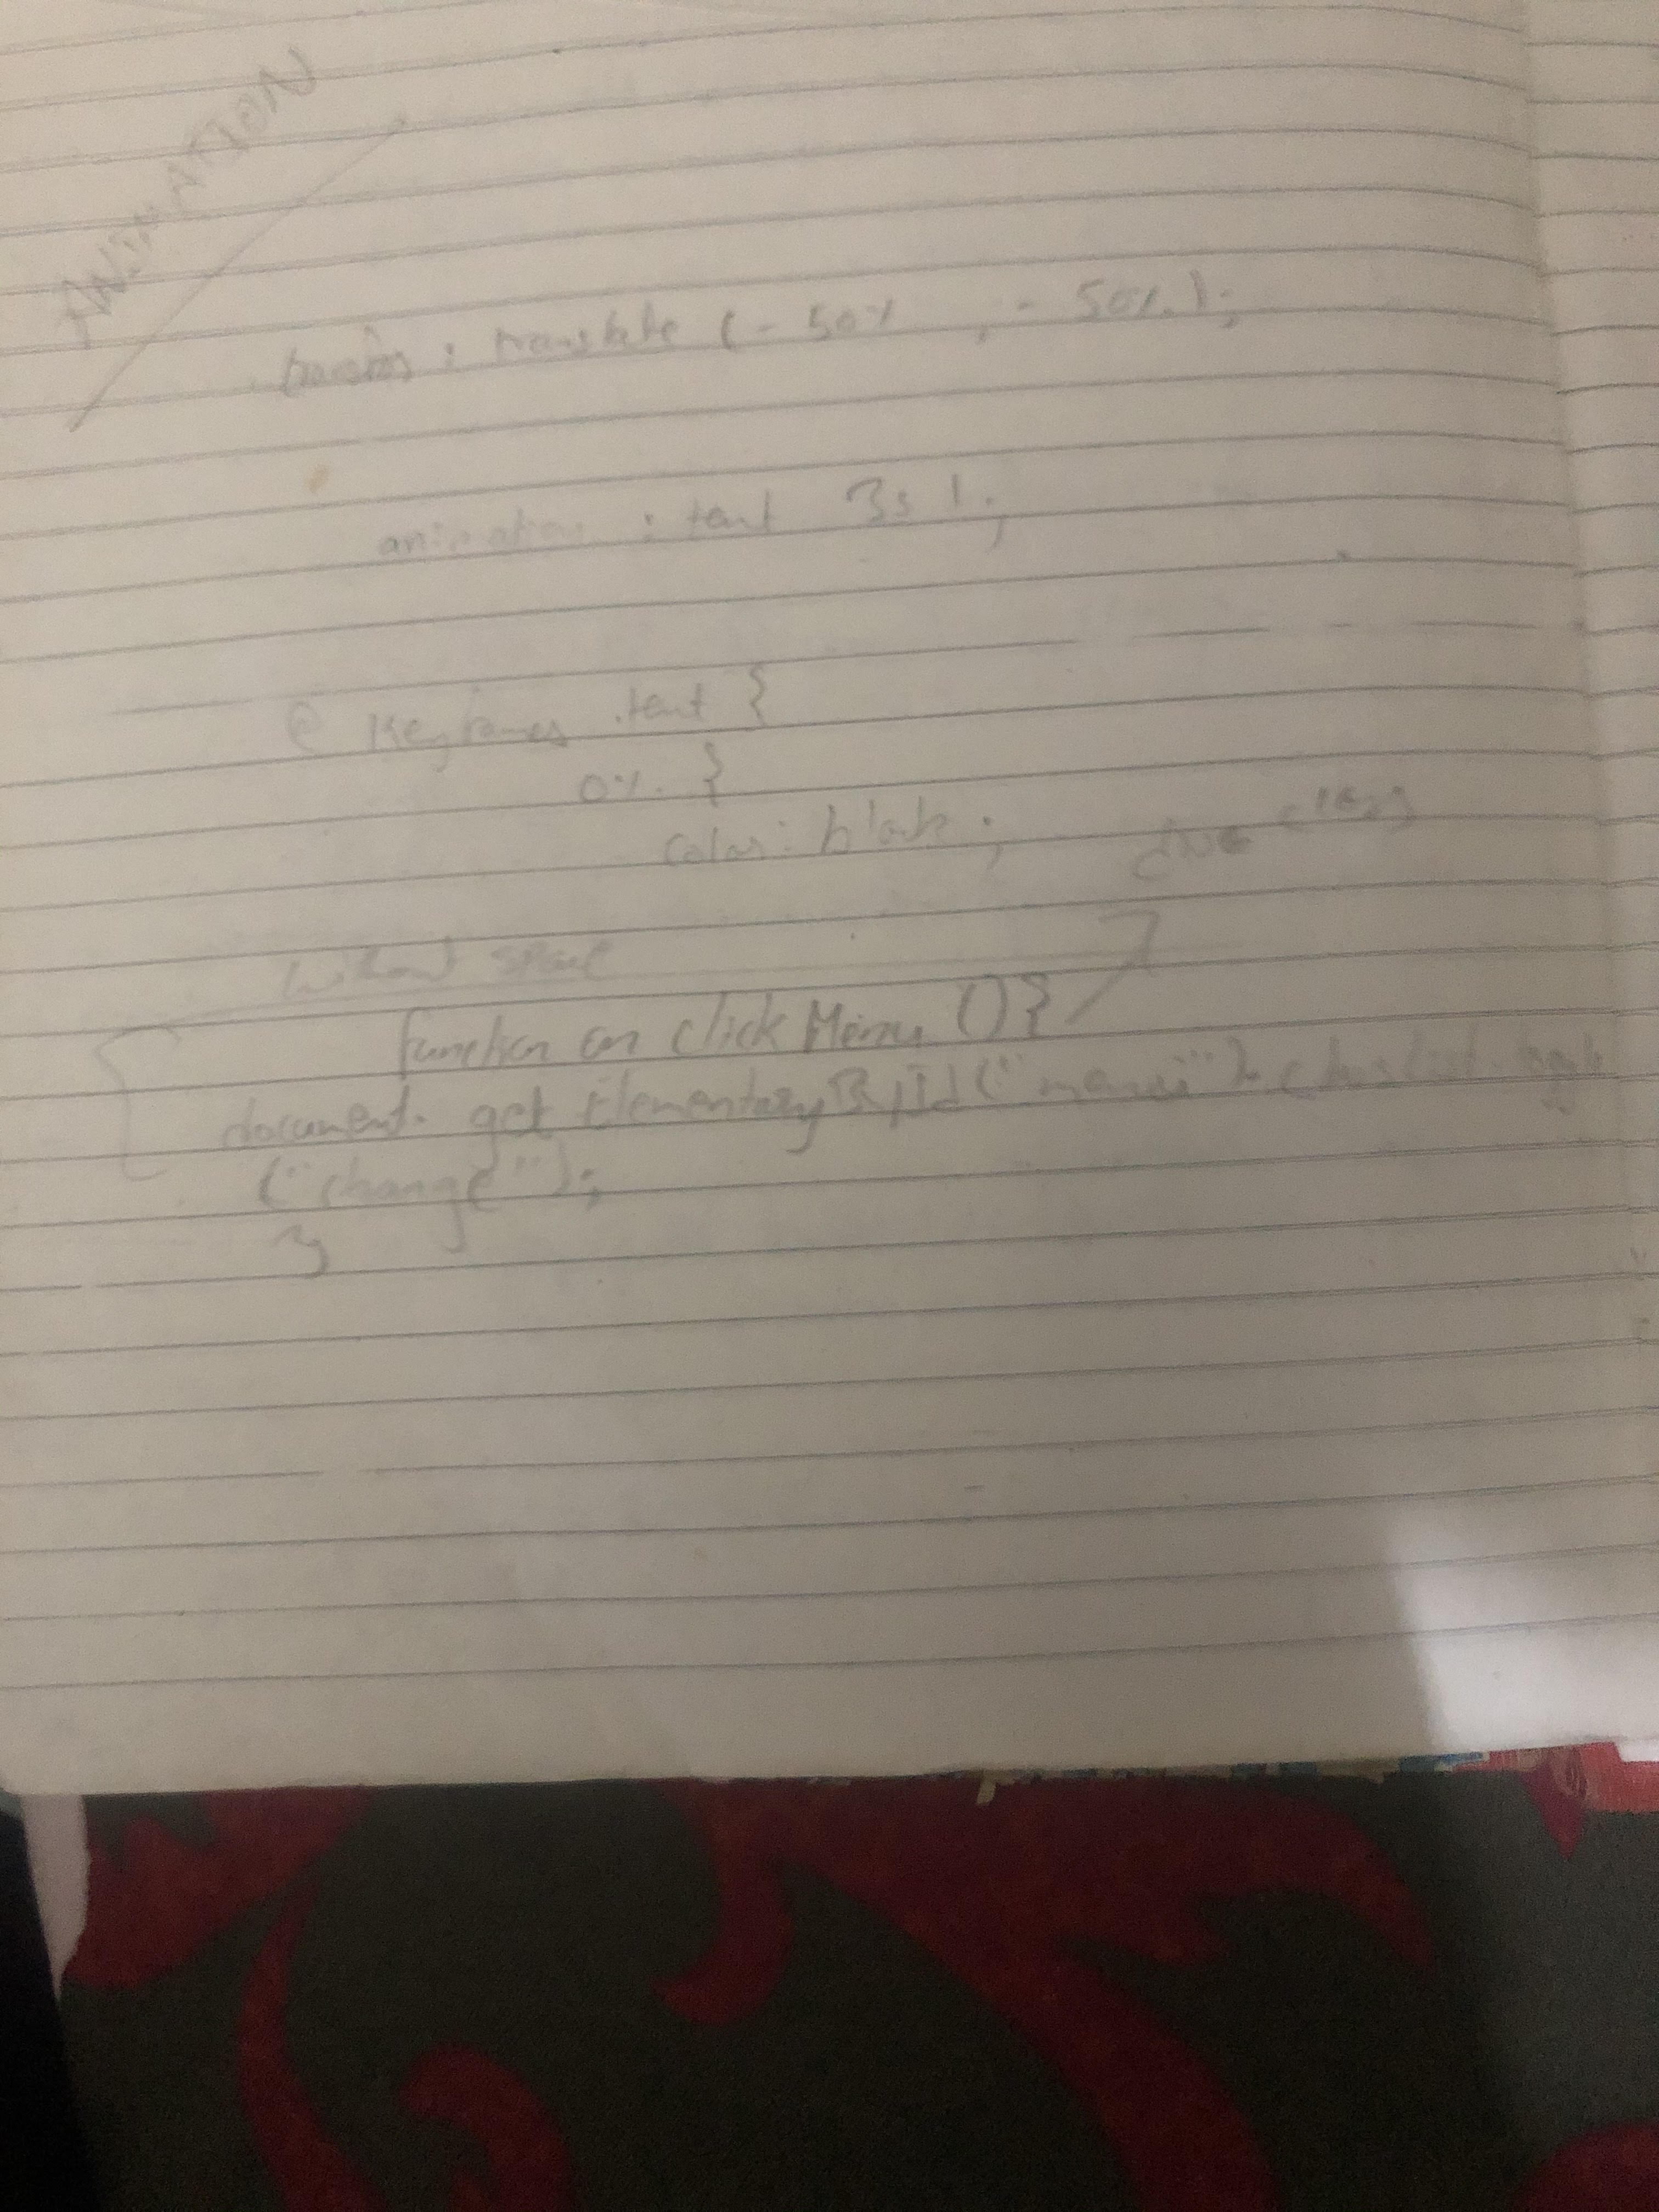 ANIMATION
: translate (- 50% , - 50%);
animation : text 3s 1;
@ Keyframes text {
0% }
color: black;
without space
function on click Menu () }
document. get Elementary By Id ("menu"). classList. toggle
("change");
}